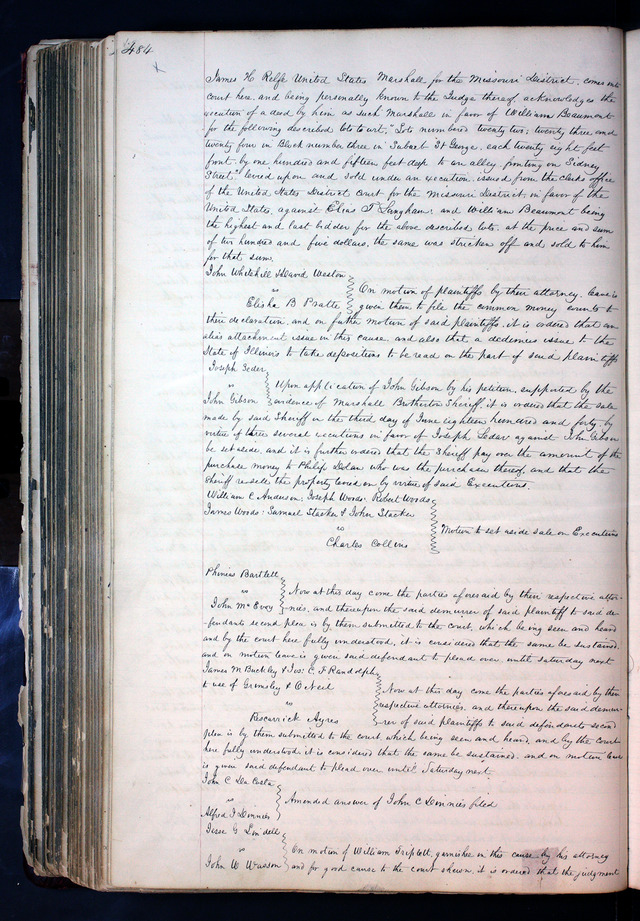 484
James H Relfe United States Marshall for the Missouri District, comes into
court here, and being personally known to the Judge thereof, acknowledges the
execution of a deed by him as such Marshall in favor of William Beaumont
for the following described lots to wit, "Lots numbered twenty two, twenty three and
twenty four in Block number three in Suburb St George, each twenty eight feet
front, by one hundred and fifteen feet deep to an alley, fronting on Sidney
Street" levied upon and sold under an execution, issued from the clerks office
of the United States District Court for the Missouri District, in favor of the
United States, against Elias T Langham, and William Beaumont being
the highest and last bidder for the above described lots, at the price and sum
of two hundred and five dollars, the same was stricken off and sold to him
for that sum.
John Whitehill & David Weston
vs
Elisha B Pratte
On motion of plaintiffs, by their attorney, leave is
given them to file the common money counts to
their declaration, and on further motion of said plaintiffs, it is ordered that an
alias attachment issue in this cause, and also that a dedimus issue to the
State of Illinois to take depositions to be read on the part of said plaintiffs
Joseph Leder
vs
John Gibson
Upon application of John Gibson by his petition, supported by the
evidence of Marshall Brotherton Sheriff, it is ordered that the sale
made by said Sheriff on the third day of June eighteen hundred and forty, by
virtue of three several executions in favor of Joseph Ledar against John Gibson
be set aside, and it is further ordered that the Sheriff pay over the amount of the
purchase money to Philip Dolan who was the purchaser thereof, and that the
Sheriff resells the property levied on by virtue of said Executions.
William C Anderson, Joseph Woods, Robert Woods
James Woods, Samuel Stacker & John Stacker
vs
Charles Collins
Motion to set aside sale on Executions
Phineas Bartlett
vs
John McEvoy
Now at this day come the parties aforesaid by their respective attor-
nies, and thereupon the said demurrer of said plaintiff to said de-
fendants second plea is by them submitted to the court, which being seen and heard
and by the court here fully understood, it is considered that the same be sustained,
and on motion leave is given said defendant to plead over until saturday next
James M Buckley & Jos: C. F Randolph
to use of Grimsley & O'Neil
vs
Bscarrick Ayres
Now at this day come the parties aforesaid by their
respective attornies, and thereupon the said demur-
rer of said plaintiffs to said defendants second
plea is by them submitted to the court, which being seen and heard, and by the court
here fully understood, it is considered that the same be sustained, and on motion leave
is given said defendant to plead over until Saturday next
John C Da Costa
vs
Alfred J Dinnies
Amended answer of John C Dinnies filed
Jesse G Lindell
vs
John W Wasson
On motion of William Triplett, garnishee in this cause by his attorney
and for good cause to the court shewn, it is ordered that the judgment